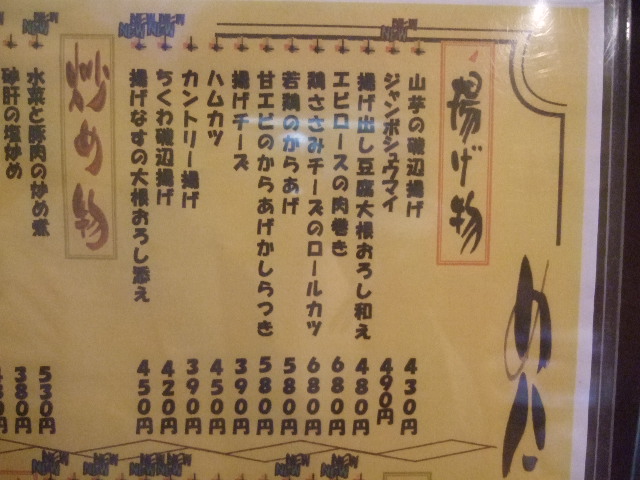 揚げ物
NEW
山芋の磯辺揚げ 430円
ジャンボシュウマイ 490円
揚げ出し豆腐大根おろし和え 480円
エビロースの肉巻き 680円
鶏ささみチーズのロールカツ 680円
若鶏のからあげ 580円
甘エビのからあげかしらつき 580円
揚げチーズ 390円
ハムカツ 450円
カントリー揚げ 390円
NEW NEW
ちくわ磯辺揚げ 420円
揚げなすの大根おろし添え 450円
炒め物
NEW
水菜と豚肉の炒め煮 530円
砂肝の塩炒め 380円
NEW
NEW
NEW NEW
NEW
NEW